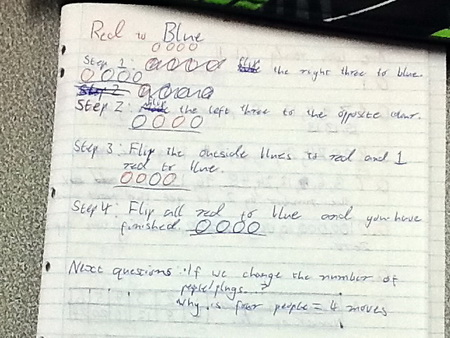 Red to Blue
Step 1: flip the right three to blue.
Step 2
Step 2: flip the left three to the opposite colour.
Step 3: Flip the outside blues to red and 1
red to blue.
Step 4: Flip all red to blue and you have
finished
Next questions · If we change the number of
people/plugs...?
why is four people = 4 moves